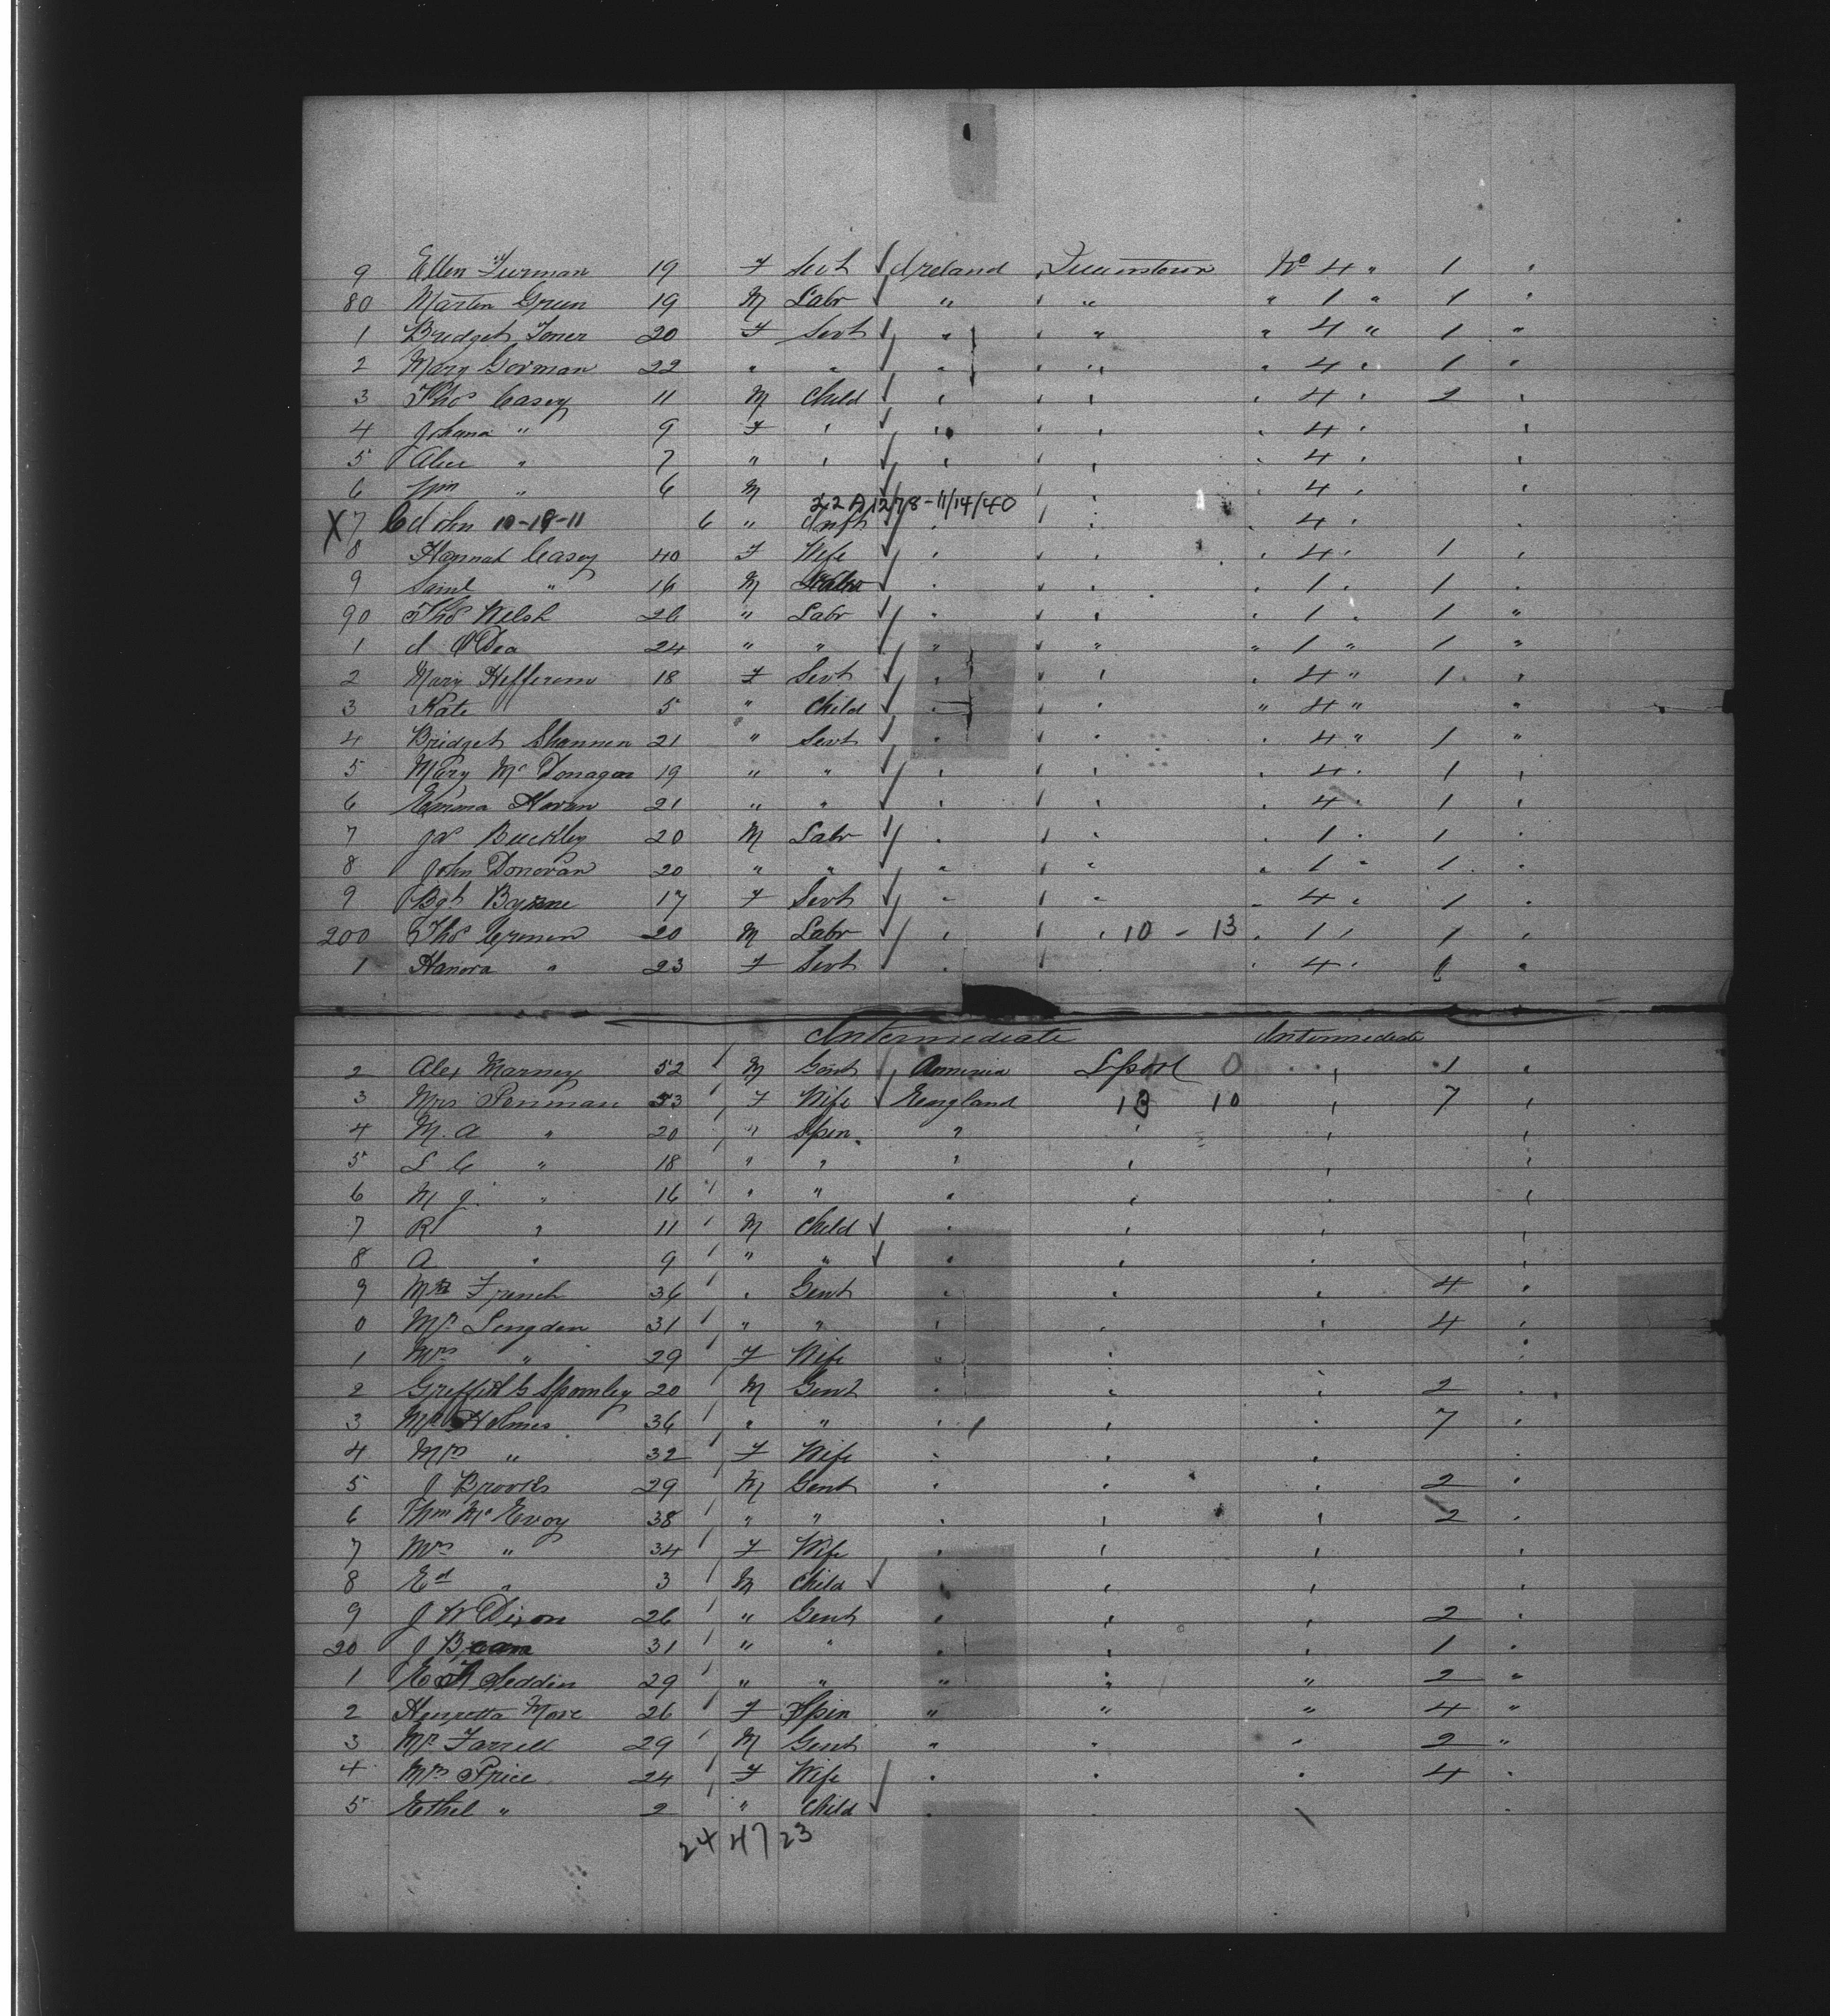 9 Ellen Furman 19 F Servt Ireland Queenstown No 4 " 1 "
80 Martin Green 19 M Labr " " " 1 " 1 "
1 Bridget Toner 20 F Servt " " " 4 " 1 "
2 Mary Gorman 22 " " " " " 4 " 1 "
3 Thos Casey 11 M Child " " " 4 " 2 "
4 Johana " 9 F " " " " 4 " "
5 Alice " 7 " " " " " 4 " "
6 Wm " 6 M " " " 4 " "
22 A 1278-11/14/40
X 7 John 10-19-11 6 " Inft " " " 4 " "
8 Hannah Casey 40 F Wife " " " 4 " 1 "
9 Saml " 16 M " " " 1 " 1 "
90 Thos Welsh 26 " Labr " " " 1 " 1 "
1 J O'Dea 24 " " " " " 1 " 1 "
2 Mary Hefferem 18 F Servt " " " 4 " 1 "
3 Kate " 5 " Child " " " 4 " "
4 Bridget Shannen 21 " Servt " " " 4 " 1 "
5 Mary Mc Donagan 19 " " " " " 4 " 1 "
6 Emma Horan 21 " " " " " 4 " 1 "
7 Js Buckley 20 M Labr " " " 1 " 1 "
8 John Donovan 20 " " " " " 1 " 1 "
9 Bgt Byrne 17 F Servt " " " 4 " 1 "
200 Thos Cremen 20 M Labr " " 10 - 13 " 1 " 1 "
1 Hanora " 23 F Servt " " 4 " "
Intermediate Intermediate
2 Alex Marney 52 M Gent L'pool 0 " 1 "
3 Mrs Penman 53 F Wife England 10 10 " 7 "
4 M. A " 20 " Spin " " " "
5 L C " 18 " " " " " "
6 M J " 16 " " " " " "
7 R " 11 M Child " " " "
8 A " 9 " " " " " "
9 Mr French 36 " Gent " " " 4 "
0 Mr Longden 31 " " " " " 4 "
1 Mrs " 29 F Wife " " "
2 Griffith Spornley 20 M Gent " " " 2 "
3 Mr Holmes 36 " " " " " 7 "
4 Mrs " 32 F Wife " " " "
5 J Brooks 29 M Gent " " " 2 "
6 Wm Mc Evoy 38 " " " " " 2 "
7 Mrs " 34 F Wife " " " "
8 Ed " 3 M Child " " " "
9 J W Dixon 26 " Gent " " " 2 "
20 J 31 " " " " " 1 "
1 Seddin 29 " " " " " 2 "
2 Henretta More 26 F Spin " " " 4 "
3 Mr Farrell 29 M Gent " " " 2 "
4 Mrs Price 24 F Wife " " " 4 "
5 Ethel " 2 " Child " " "
24 47 23